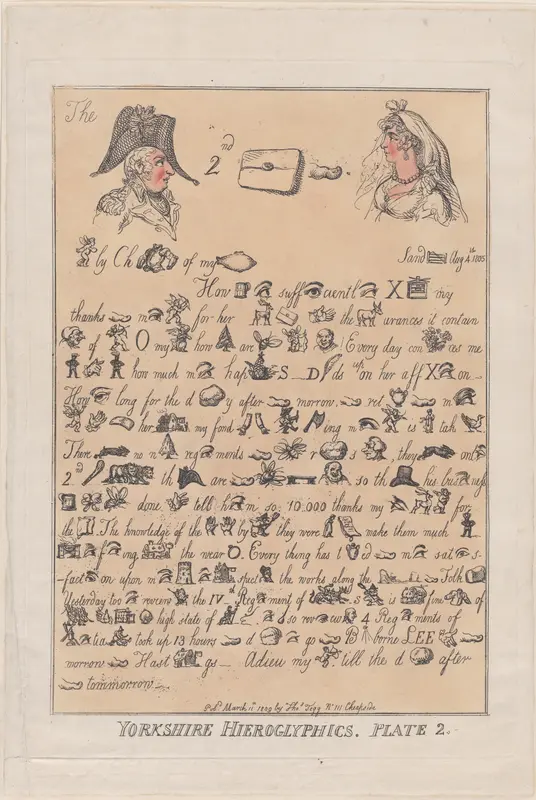 The
2nd
by Ch of my
Sand Aug 4th 1805
How suff cientl X my
thanks m for her the urances it contain
of O my how are Every day con ces me
how much m hap S D ds upon her aff X on
How long for the d y after morrow, ret m
her my fond ing m is tak
There no n reg ments r s, they onl
2nd th are so th his bus ness
done tell h m so 10.000 thanks my for
the The knowledge of the by they were make them much
f ing the wear O. Every thing has t ed m sat s-
fact on upon m spect the works along the Folk
Yesterday too review the IVth Reg ment of s is fine of
high state of so rev 4 Reg ments of
lia took up 13 hours d go B borne LEE
morrow Hast gs Adieu my till the d after
tommorrow
Pubd March 11 1809 by Thos Tegg No 111 Cheapside
YORKSHIRE HIEROGLYPHICS. PLATE 2.